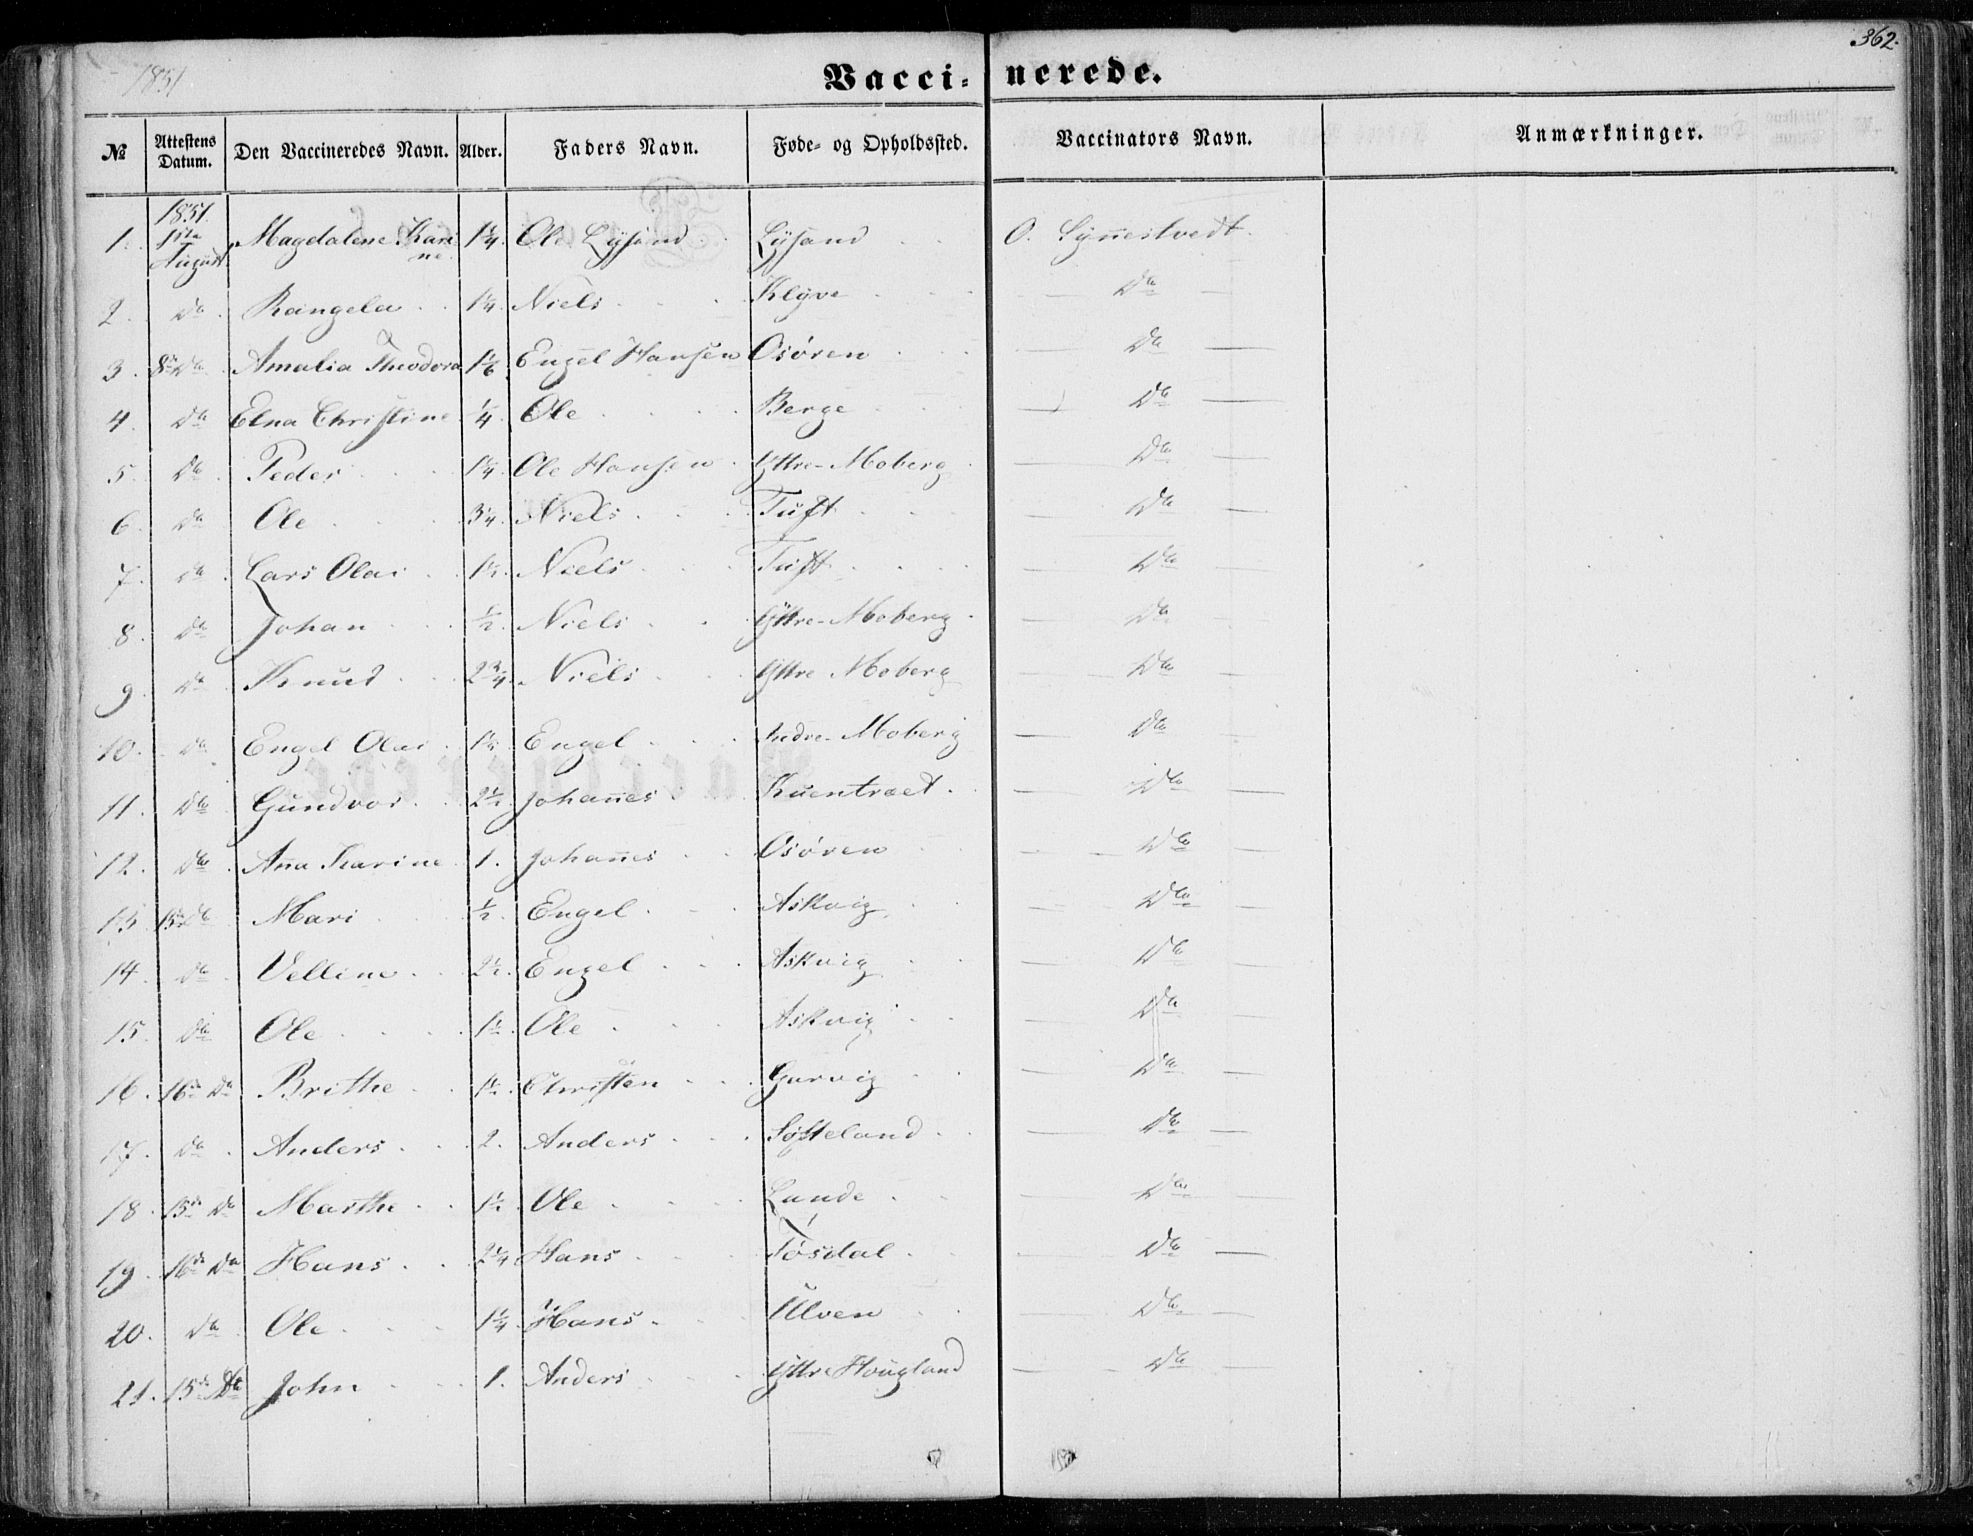 1851
362.
Vaccinerede.
№ Attestens Datum. Den Vaccineredes Navn. Alder. Faders Navn. Føde- og Opholdssted. Vaccinators Navn. Anmærkninger.
1851.
1. August Magdalene Karine 1¼ Ole Lysand Lysand O. Synnestvedt
2. Do Rangela 1¼ Niels Klyve Do
3. 8de Do Amalia Theodora 1⅙ Engel Hansen Osøren Do
4. Do Elna Christine ¼ Ole Berge Do
5. Do Peder 1¼ Ole Hansen Yttre-Moberg Do
6. Do Ole 3¼ Niels Tuft Do
7. Do Lars Olai Niels Tuft Do
8. Do Johan ½ Niels Yttre-Moberg Do
9. Do Knud 2¾ Niels Yttre Moberg Do
10. Do Engel Olai Engel Indre-Moberg Do
11. Do Gundvor 2½ Johan̄es Kuentræet Do
12. Do An̄a Karine 1. Johan̄es Osøren Do
13 15de Do Mari ½ Engel Askvig Do
14. Do Velline 2½ Engel Askvig Do
15. Do Ole 1½ Ole Askvig Do
16. 16de Do Brithe 1½ Christen Garvig Do
17. Do Anders 2. Anders Søfteland Do
18 15de Do Marthe 1½ Ole Lunde Do
19. 16de Do Hans 2¼ Hans Tøsdal Do
20. Do Ole 1¼ Hans Ulven Do
21. 15de Do John 1. Anders Yttre Hougland Do